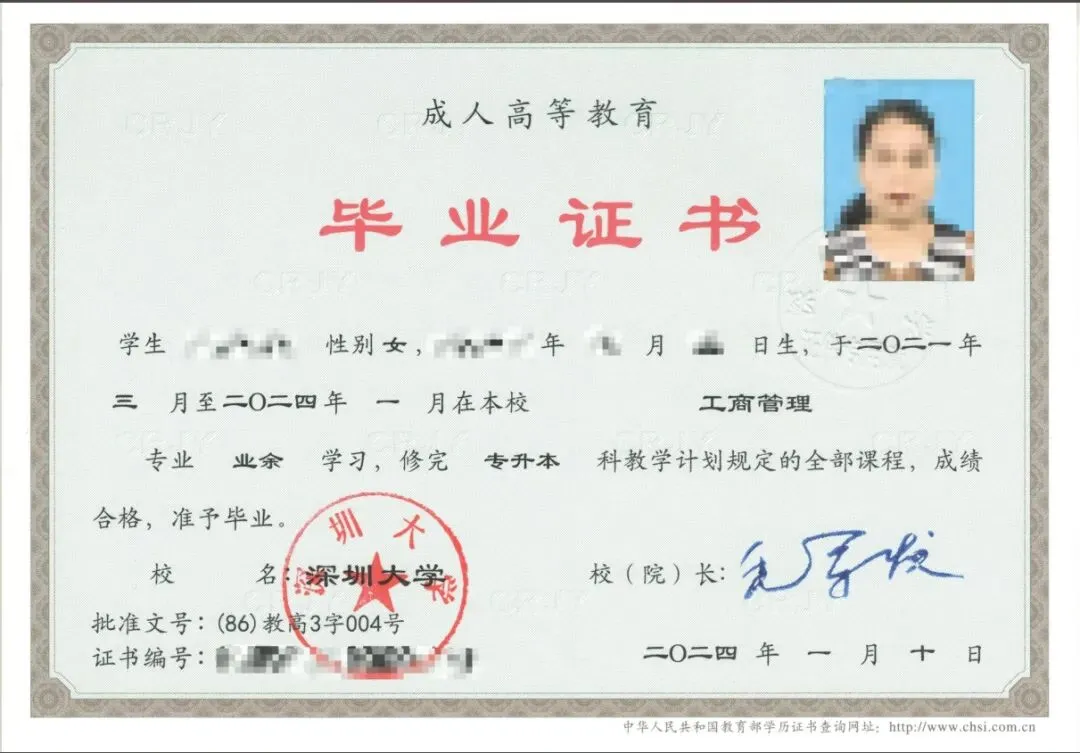 成人高等教育
毕业证书
学生 性别女， 年 月 日生，于二〇二一年
三 月至二〇二四年 一 月在本校 工商管理
专业 业余 学习，修完 专升本 科教学计划规定的全部课程，成绩
合格，准予毕业。
校 名：深圳大学
深圳大学
校（院）长：
批准文号：(86)教高3字004号
证书编号：
二〇二四 年 一 月 十 日
中华人民共和国教育部学历证书查询网址：http://www.chsi.com.cn